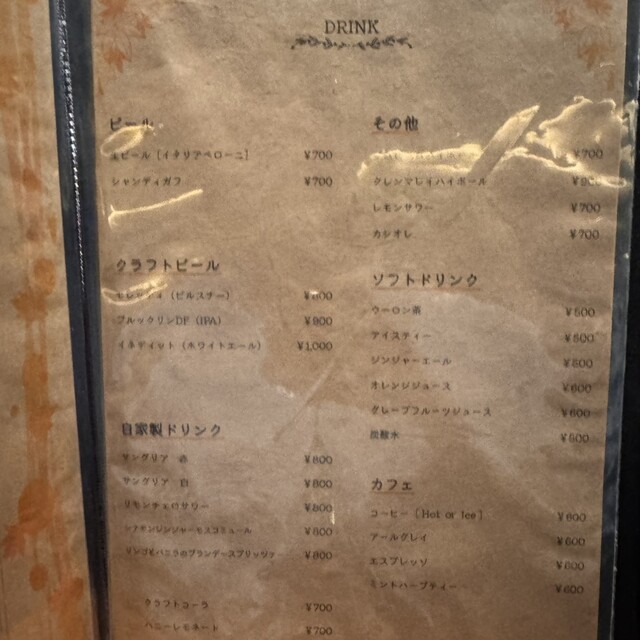 DRINK
ビール
生ビール [イタリアペローニ] ¥700
シャンディガフ ¥700
クラフトビール
モレッティ (ピルスナー) ¥800
ブルックリンDF (IPA) ¥900
イネディット (ホワイトエール) ¥1,000
自家製ドリンク
サングリア 赤 ¥800
サングリア 白 ¥800
リモンチェロサワー ¥800
シナモンジンジャーモスコミュール ¥800
リンゴとバニラのブランデースプリッツァ ¥800
クラフトコーラ ¥700
ハニーレモネード ¥700
その他
¥700
グレンマレイハイボール
レモンサワー ¥700
カシオレ ¥700
ソフトドリンク
ウーロン茶 ¥500
アイスティー ¥500
ジンジャーエール ¥500
オレンジジュース ¥600
グレープフルーツジュース ¥600
炭酸水 ¥500
カフェ
コーヒー [Hot or Ice] ¥600
アールグレイ ¥600
エスプレッソ ¥600
ミントハーブティー ¥600